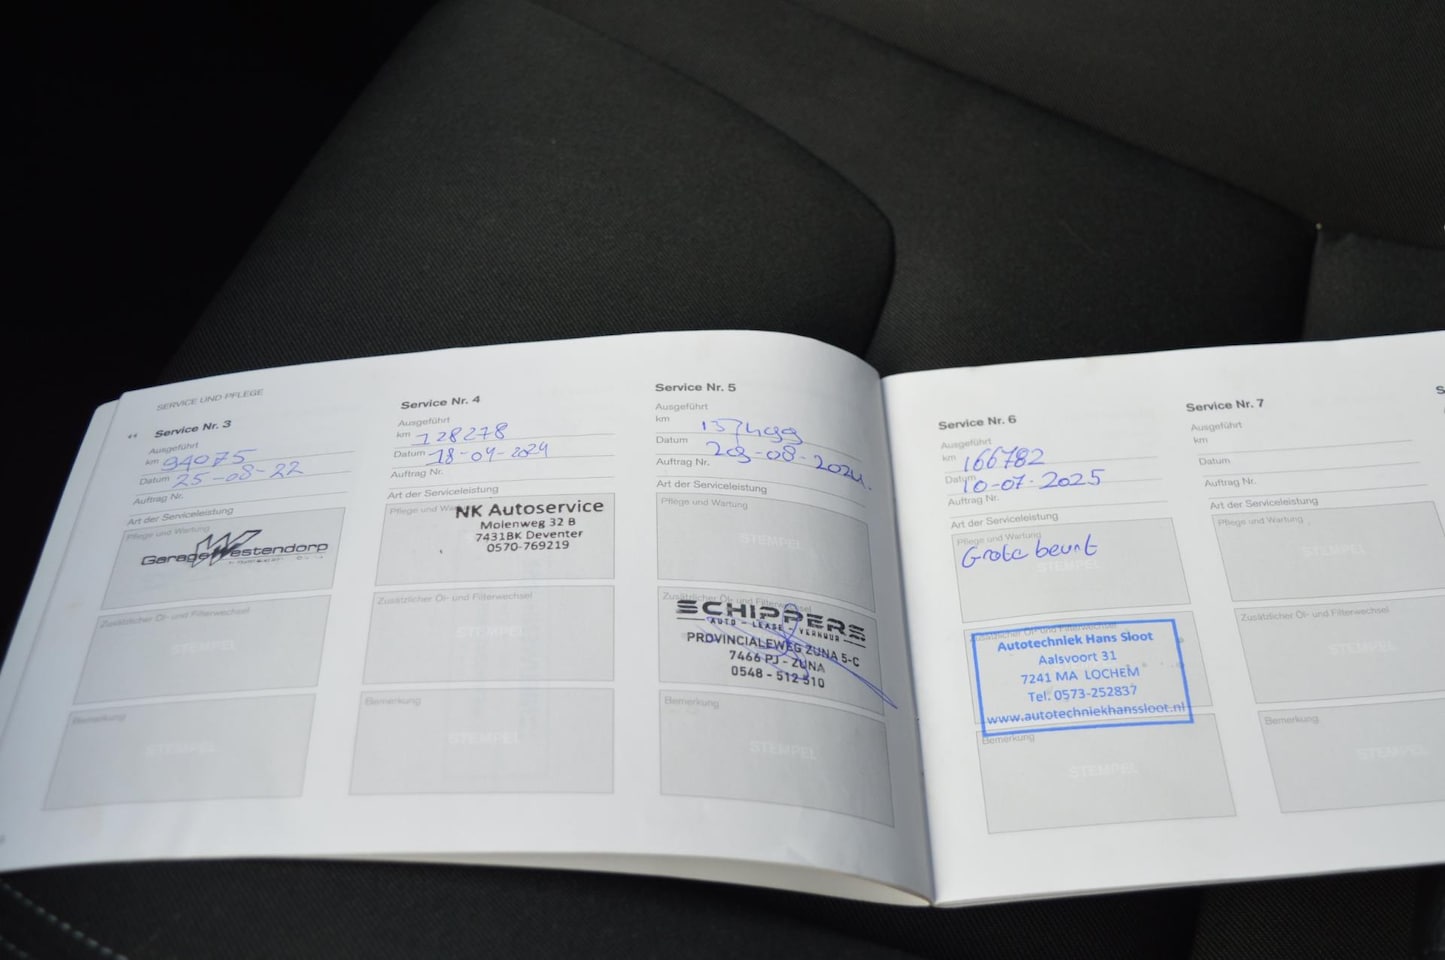 SERVICE UND PFLEGE
Service Nr. 3
Ausgeführt
km 94075
Datum 25-08-22
Auftrag Nr.
Art der Serviceleistung
Pflege und Wartung
Garage Westendorp
Zusätzlicher Öl- und Filterwechsel
STEMPEL
Bemerkung
STEMPEL
Service Nr. 4
Ausgeführt
km 128278
Datum 18-04-2024
Auftrag Nr.
Art der Serviceleistung
Pflege und
NK Autoservice
Molenweg 32 B
7431BK Deventer
0570-769219
Zusätzlicher Öl- und Filterwechsel
STEMPEL
Bemerkung
STEMPEL
Service Nr. 5
Ausgeführt
km
Datum 29-08-2024.
Auftrag Nr.
Art der Serviceleistung
Pflege und Wartung
STEMPEL
Zusätzlicher Öl- und Filterwechsel
SCHIPPERS
AUTO - LEASE - VERHUUR
PROVINCIALEWEG ZUNA 5-C
7466 PJ - ZUNA
0548 - 512 310
Bemerkung
STEMPEL
Service Nr. 6
Ausgeführt
km 166782
Datum 10-07-2025
Auftrag Nr.
Art der Serviceleistung
Pflege und Wartung
Grote beurt
STEMPEL
Zusätzlicher Öl- und Filterwechsel
Autotechniek Hans Sloot
Aalsvoort 31
7241 MA LOCHEM
Tel. 0573-252837
www.autotechniekhanssloot.nl
Bemerkung
STEMPEL
Service Nr. 7
Ausgeführt
km
Datum
Auftrag Nr.
Art der Serviceleistung
Pflege und Wartung
STEMPEL
Zusätzlicher Öl- und Filterwechsel
STEMPEL
Bemerkung
STEMPEL